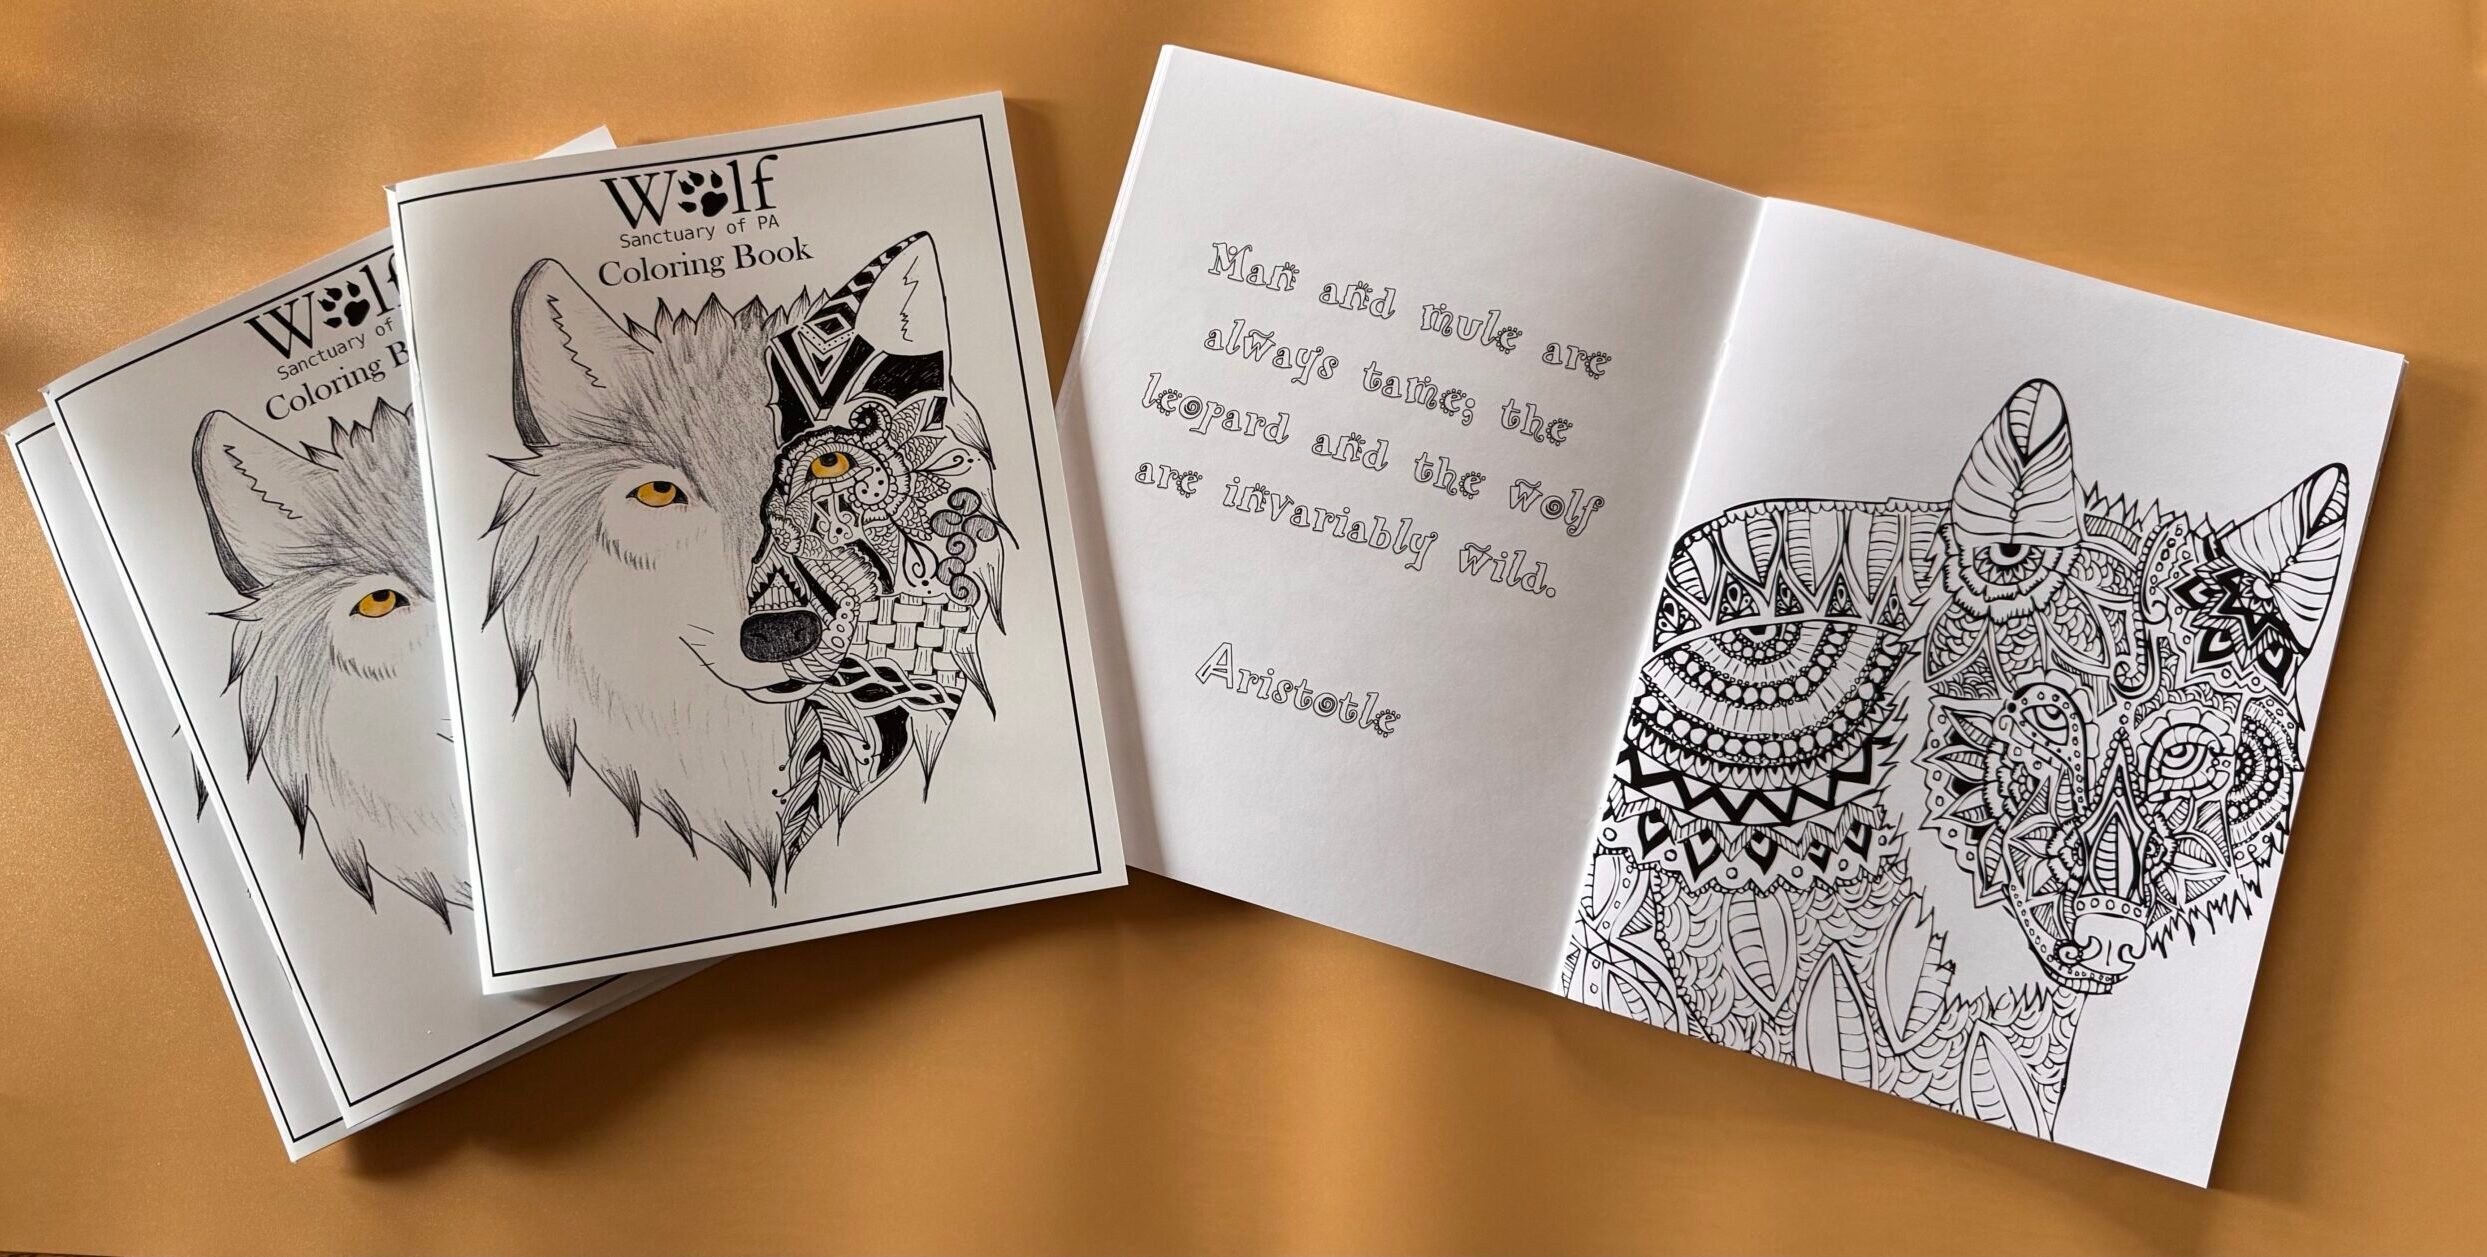 Wolf
Sanctuary of
Coloring B
Wolf
Sanctuary of PA
Coloring Book
Man and mule are
always tame; the
leopard and the wolf
are invariably wild.
Aristotle